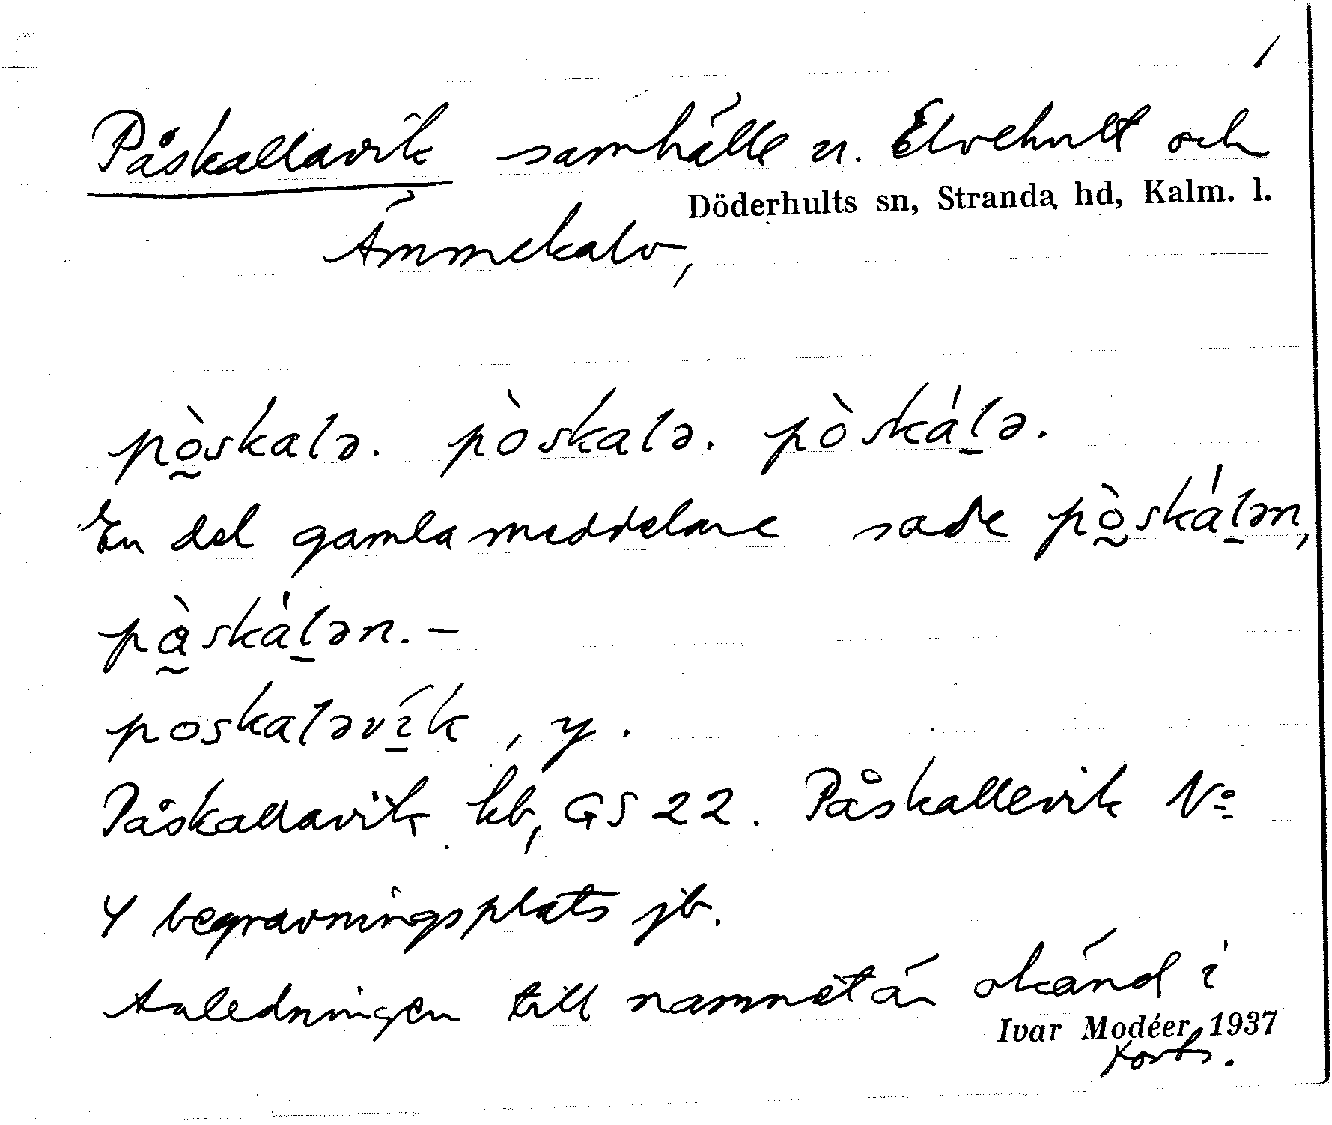 1
Påskallavik samhälle u. Elvehult och
Döderhults sn, Stranda hd, Kalm. l.
Ämmekalv,
pò̰skalə. pòskalə. pòská̱lə.
En del gamla meddelare sade pò̰ská̱lən,
pà̰ská̱lən. –
poskaləví̱k, y.
Påskallavik kb, GS 22. Påskallevik No
4 begravningsplats jb.
Anledningen till namnet är okänd i
Ivar Modéer 1937
forts.